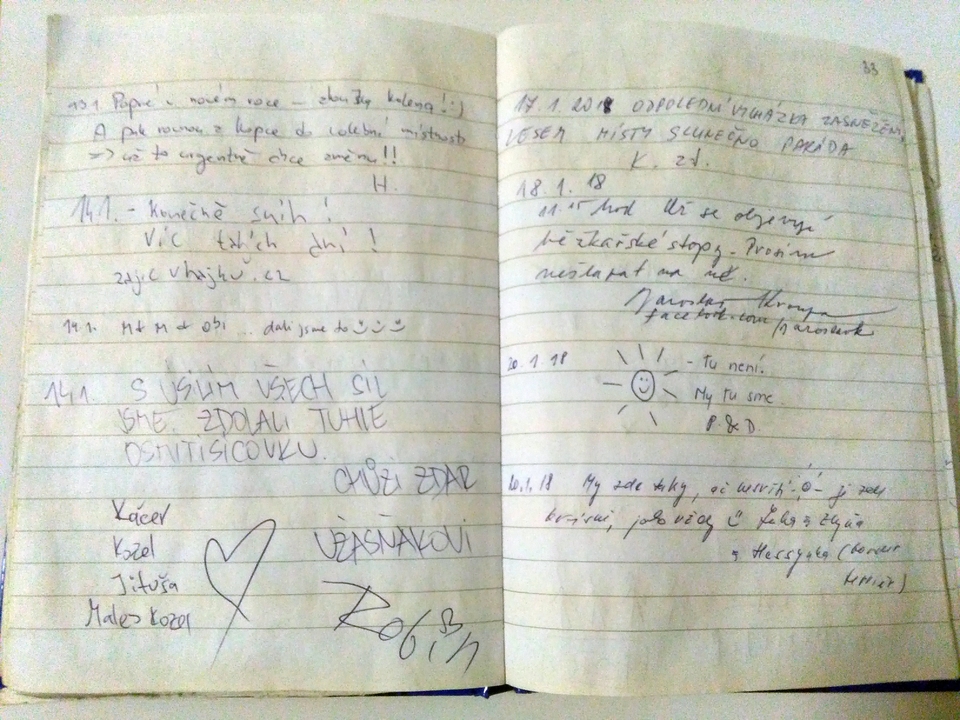 13.1. Poprvé v novém roce – zkoušky kolena! :)
A pak rovnou z kopce do volební místnosti
=> už to urgentně chce změnu!!
H.
14.1. - Konečně sníh!
Víc těchto dní!
19.1. M + M + Obi ... dali jsme to
14.1. S ÚSILÍM VŠECH SIL
JSME ZDOLALI TUHLE
OSMITISÍCOVKU.
CHŮZI ZDAR
Kácer
Kozel
Jituša
Males Kozel
ÚŽASŇÁKOVI
Robin
33
17.1.2018 ODPOLEDNÍ VYCHÁZKA ZASNĚŽENÝ
LESEM MÍSTY SLUNEČNO PARÁDA
K. Zd.
18.1.18
11.15 hod Už se objevují
běžkařské stopy. Prosím
nešlapat na ně.
Jaroslav
facebook.com/
20.1.18 - Tu není.
My tu sme.
P. & D.
20.1.18 My zde taky, je zde
krásně, jako vždy